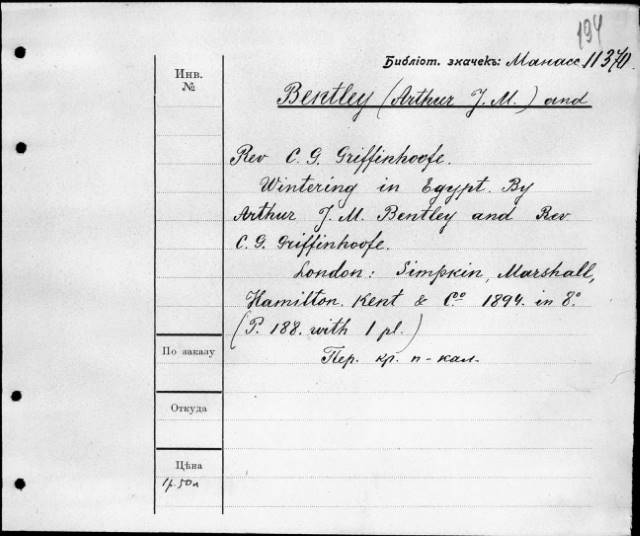 194
Библіот. значекъ: Манасс. 11370.
Инв.
№
Bentley (Arthur J. M.) and
Rev C. G. Griffinhoofe.
Wintering in Egypt. By
Arthur J. M. Bentley and Rev
C. G. Griffinhoofe.
London: Simpkin, Marshall,
Hamilton. Kent & Cᵒᵒ 1894. in 8°
(P. 188. with 1 pl.)
Пер. кр. п-кал.
По заказу
Откуда
Цѣна
1р. 50к